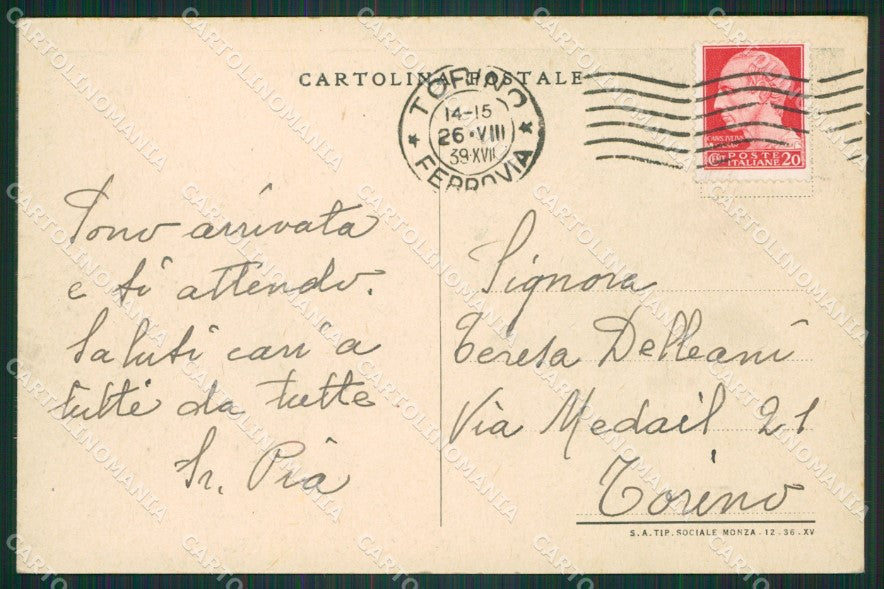 CARTOLINA POSTALE
TORINO
14-15
26·VIII
39·XVII
FERROVIA
POSTE
ITALIANE 20
Sono arrivata
e ti attendo.
Saluti cari a
tutti da tutte.
Sr. Pia
Signora
Teresa Delleani
Via Medail 21
Torino
S.A. TIP. SOCIALE MONZA - 12 - 36 - XV
CARTOLINOMANIA